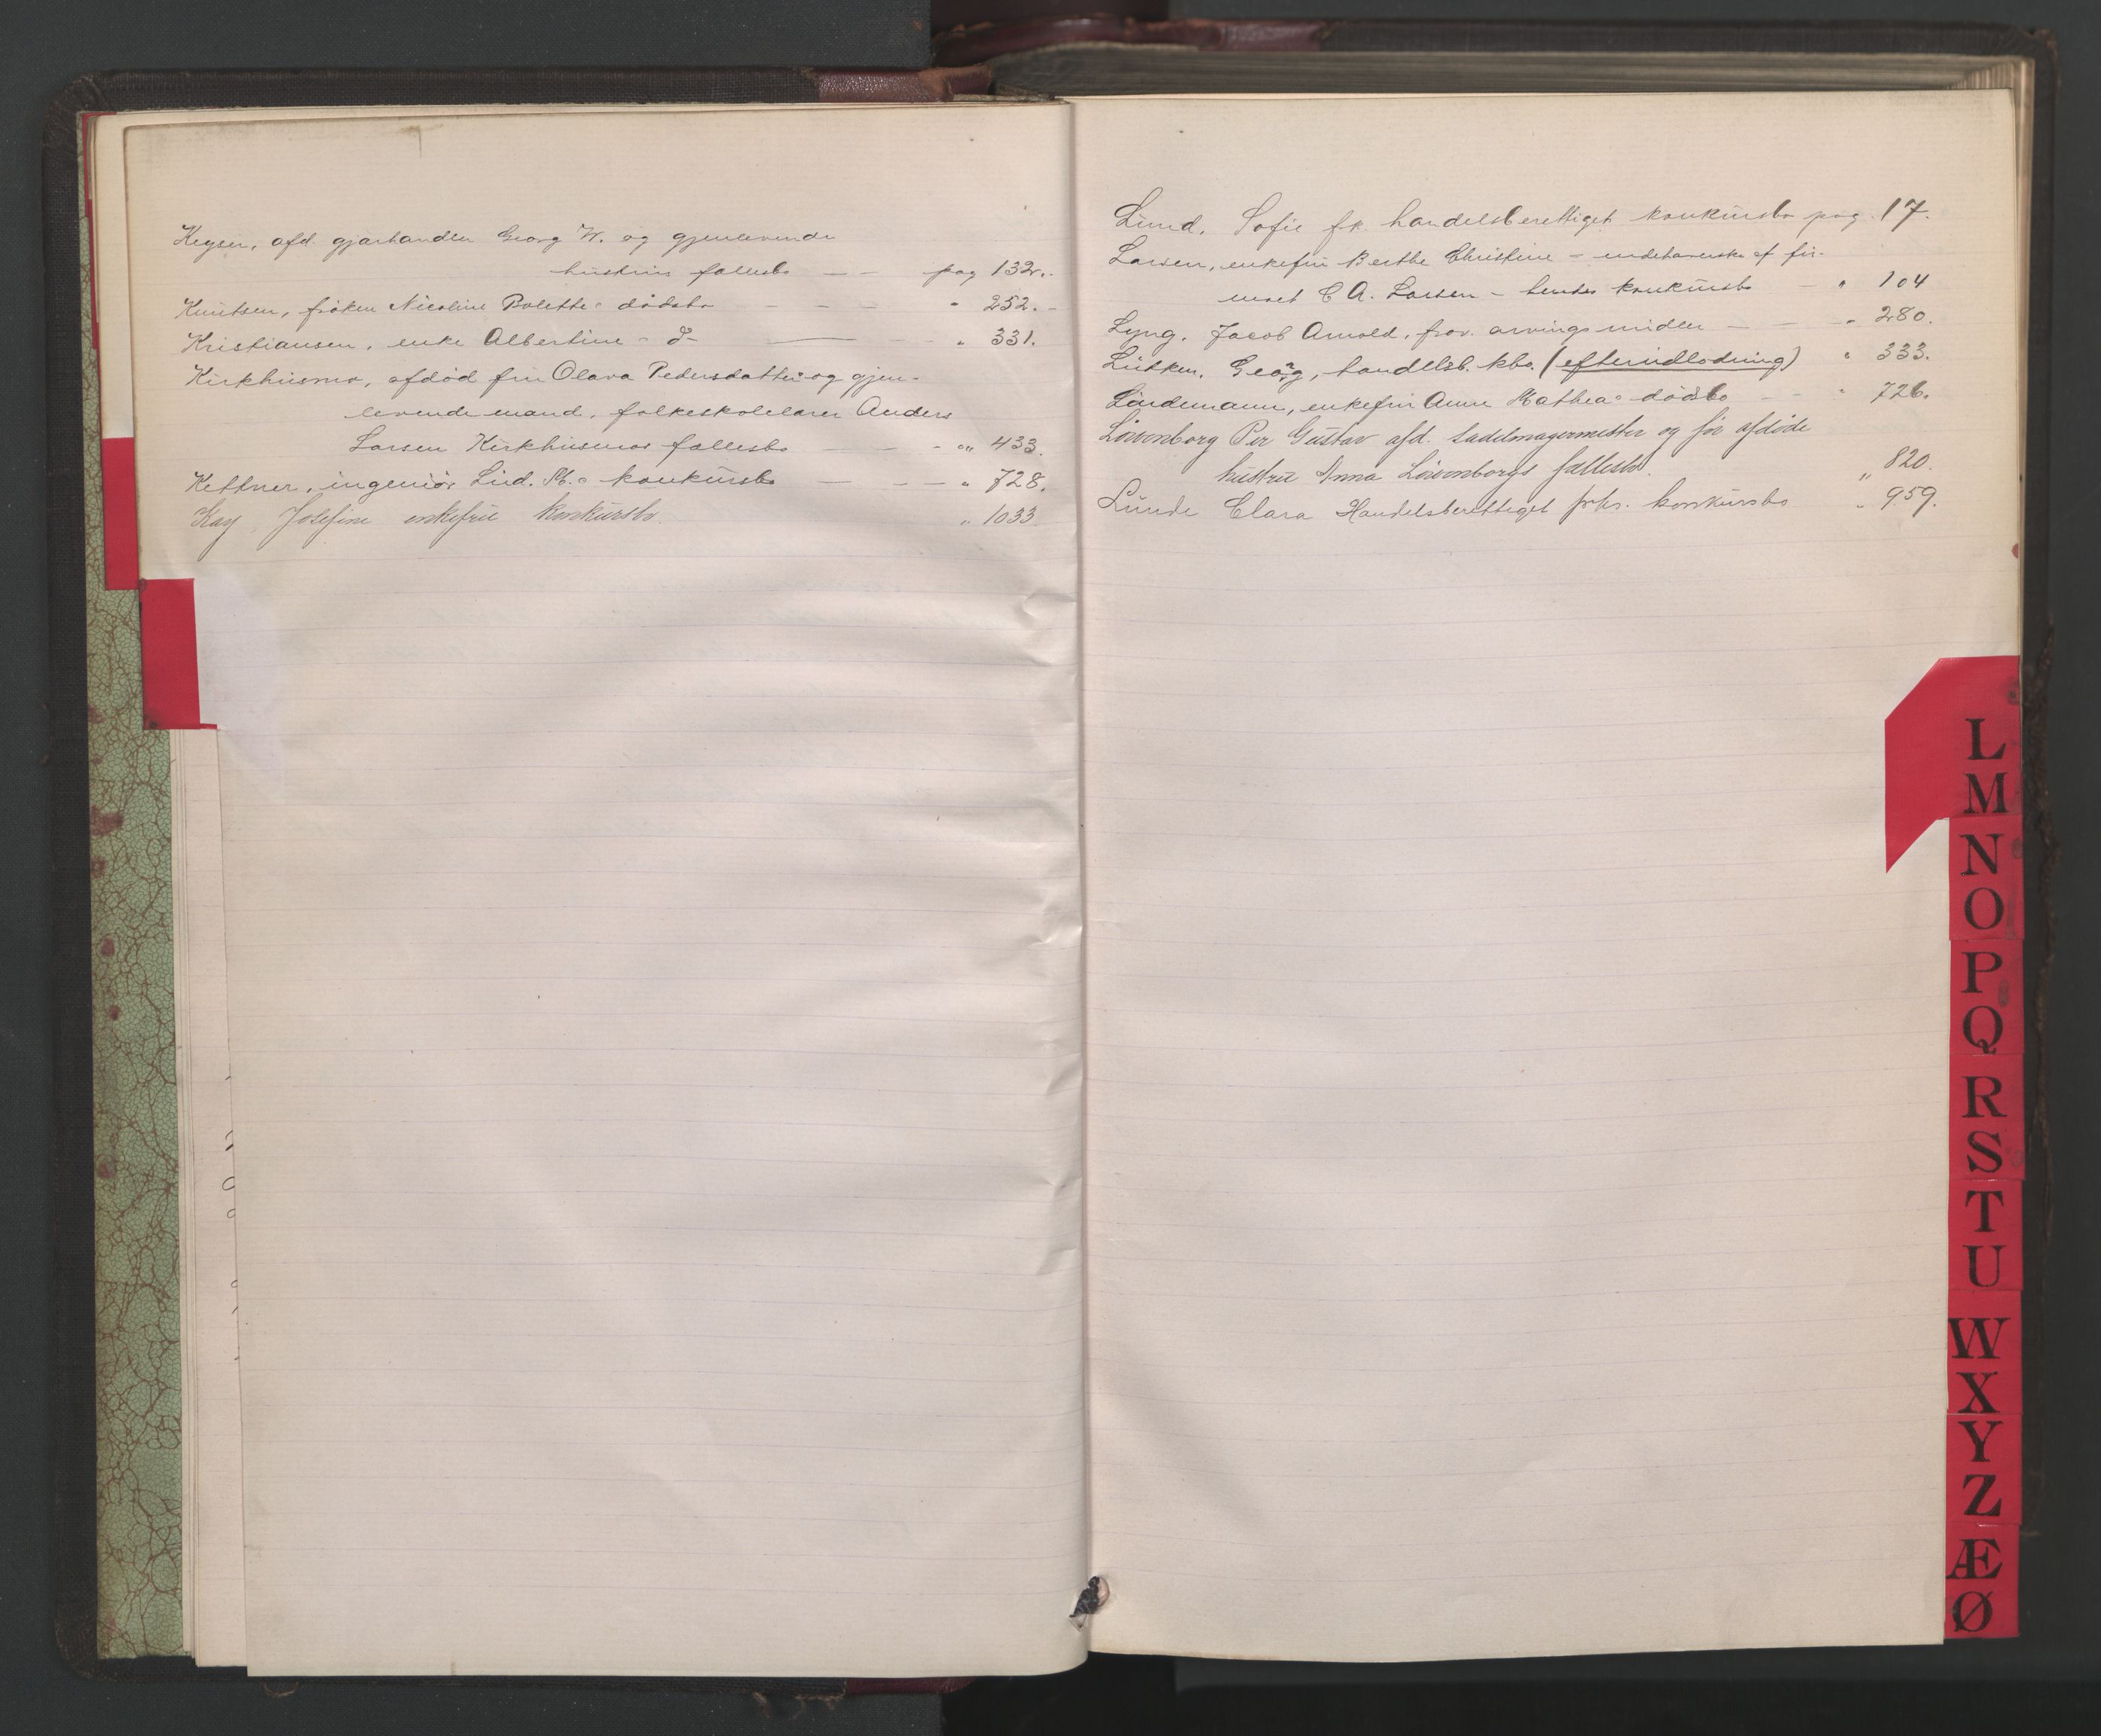 Keyser, afd. gjørtandler Georg W. og gjenlevende
hustrus fællesbo — — pag 132.
Knutsen, frøken Nicoline Polettes dødsbo — — — " 252.
Kristiansen, enke Albertines do — " 331.
Kirkhusmo, afdød fru Olava Pedersdatters og gjen-
levende mand, folkeskolelærer Anders
Larsen Kirkhusmos fællesbo — — " 433.
Kettner, ingeniør Lud. M.s konkursbo — — — " 728.
Kay Josefine enkefru konkursbo " 1033
Lund, Sofie frk. handelsberettiget konkursbo pag. 17.
Larsen, enkefru Berthe Christine – indehaverske af fir-
maet C A. Larsen – hendes konkursbo — " 104
Lyng, Jacob Arnold, frav. arvingsmidler — — — " 280.
Lütken, Georg, handelsb. kbo. (efterindlodning) " 333.
Lindemann, enkefru Anne Matheas dødsbo — — " 726.
Lövenborg Per Gustav afd. Sadelmagermester og før afdøde
hustru Anna Lövenborgs fællesbo. " 820.
Lunde Clara Handelsberettiget frks. konkursbo " 959.
L
M
N
O
P
Q
R
S
T
U
W
X
Y
Z
Æ
Ø